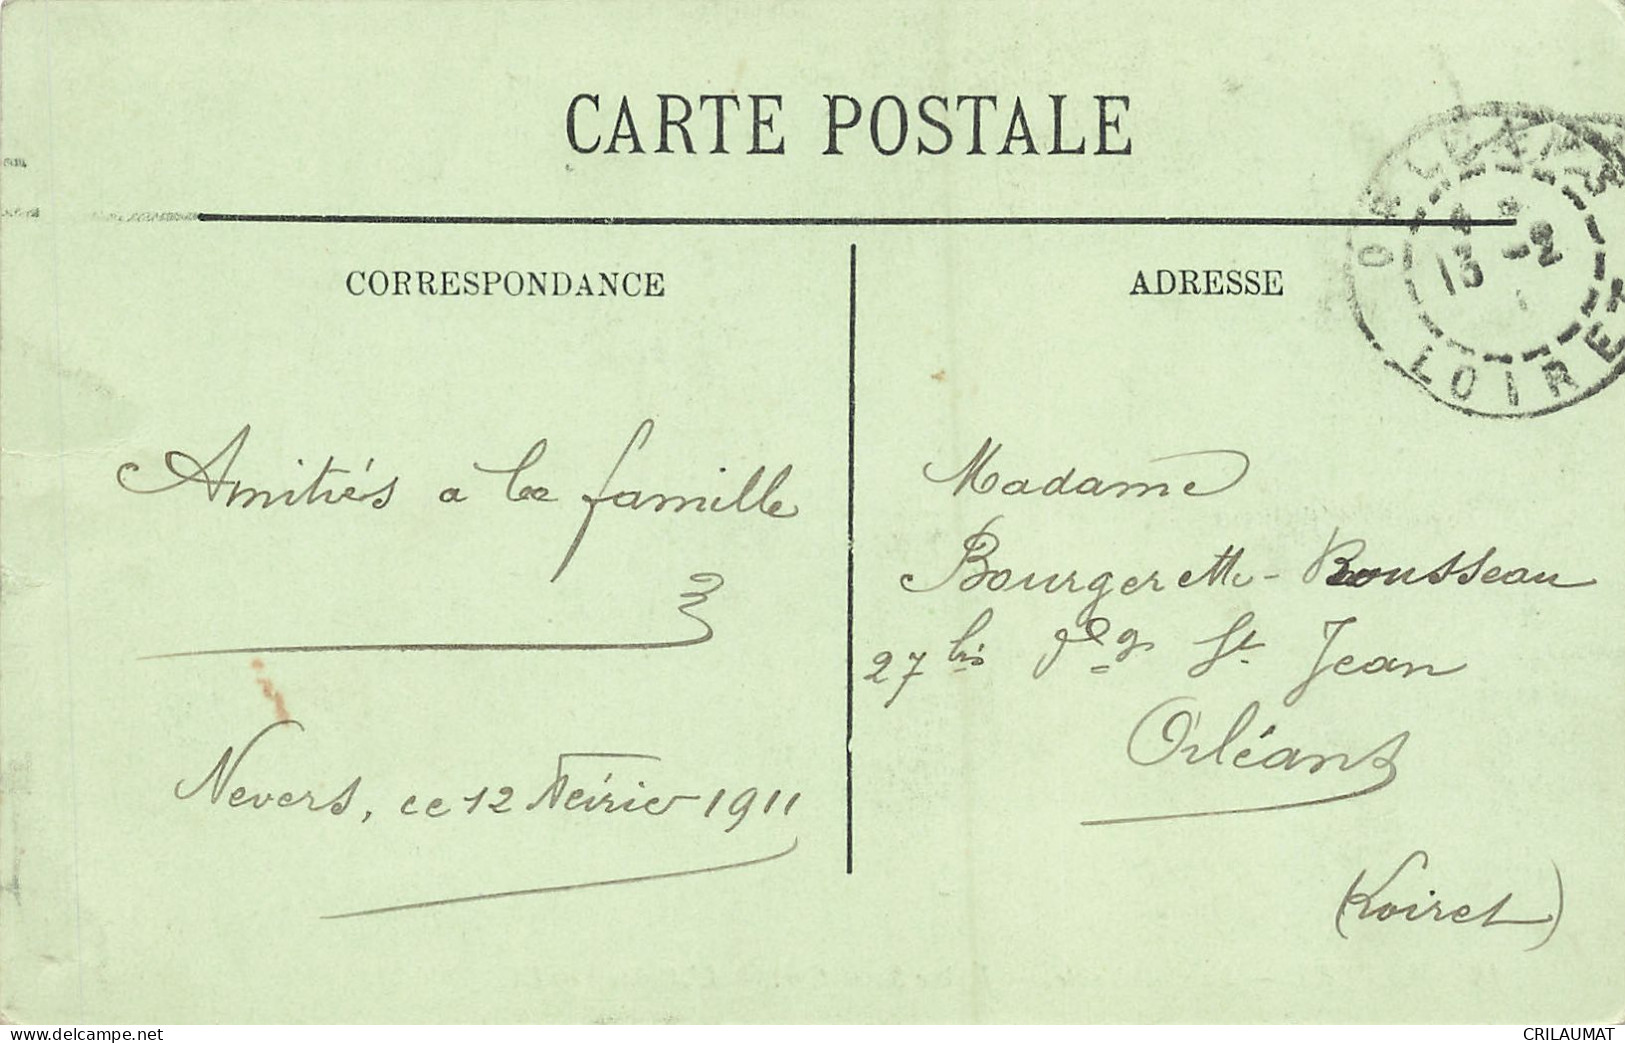 CARTE POSTALE
CORRESPONDANCE
ADRESSE
ORLEANS
13 -2
LOIRET
Amitiés a la famille
Nevers, ce 12 Février 1911
Madame
Bourgerette-Rousseau
27 bis fbg St. Jean
Orléans
(Loiret)
www.delcampe.net
CRILAUMAT